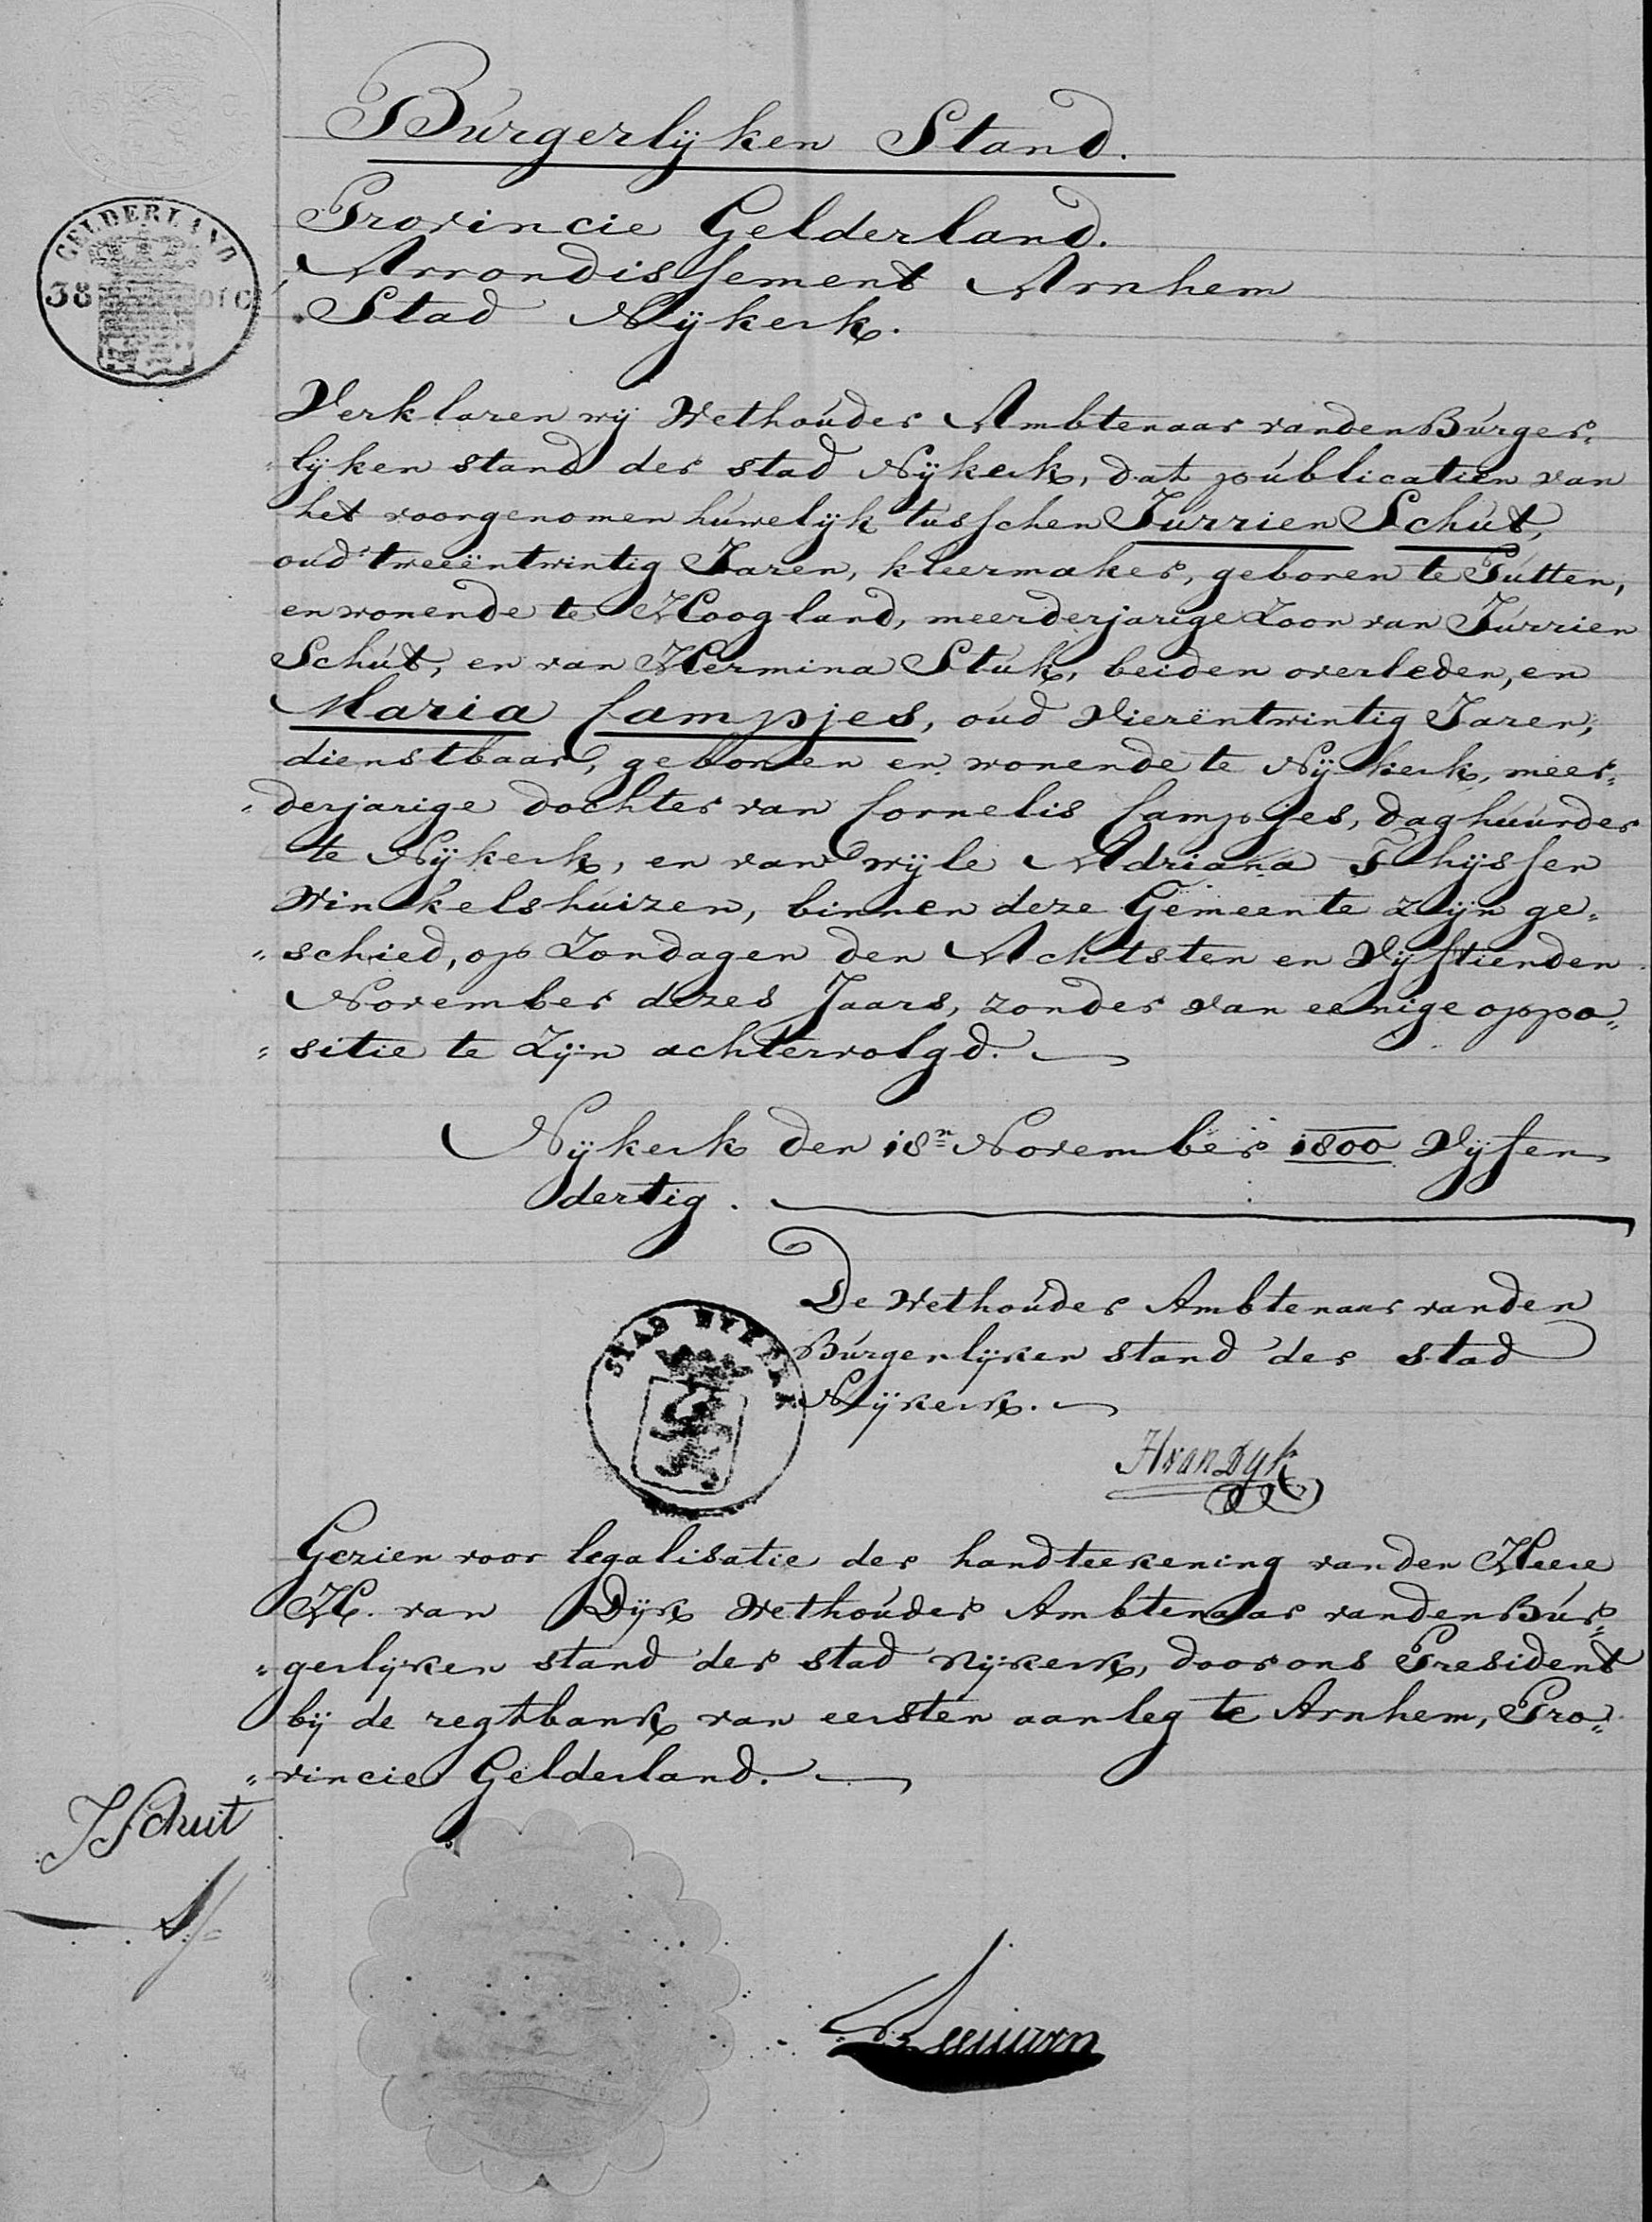 Burgerlijken Stand.
Provincie Gelderland.
Arrondissement Arnhem
Stad Nijkerk.
GELDERLAND
38
Verklaren wij Wethouder Ambtenaar van den Burger„
„lijken stand der stad Nijkerk, dat publicatien van
het voorgenomen huwelijk tusschen Jurrien Schut,
oud tweeëntwintig Jaren, kleermaker, geboren te Putten,
en wonende te Hoogland, meerderjarige Zoon van Jurrien
Schut, en van Hermina Stuk, beiden overleden, en
Maria Campjes, oud Vierëntwintig Jaren,
dienstbaar, geboren en wonende te Nijkerk, meer„
„derjarige dochter van Cornelis Campjes, daghuurder
te Nijkerk, en van wijle Adriana Thijssen
Winkelshuizen, binnen deze Gemeente zijn ge„
„schied, op Zondagen den Achtsten en Vijftienden
November dezes Jaars, zonder van eenige oppo„
„sitie te Zijn achtervolgd.
Nijkerk den 18n November 1800 Vijfen
dertig.
De Wethouder Ambtenaar van den
Burgerlijken stand der stad
Nijkerk.
STAD NYKERK
H van Dyk
Gezien voor legalisatie der handteekening van den Heere
H. van Dijk Wethouder Ambtenaar van den Bur„
„gerlijken stand der stad Nijkerk, door ons President
bij de regtbank van eersten aanleg te Arnhem, Pro„
„vincie Gelderland.
J Schut